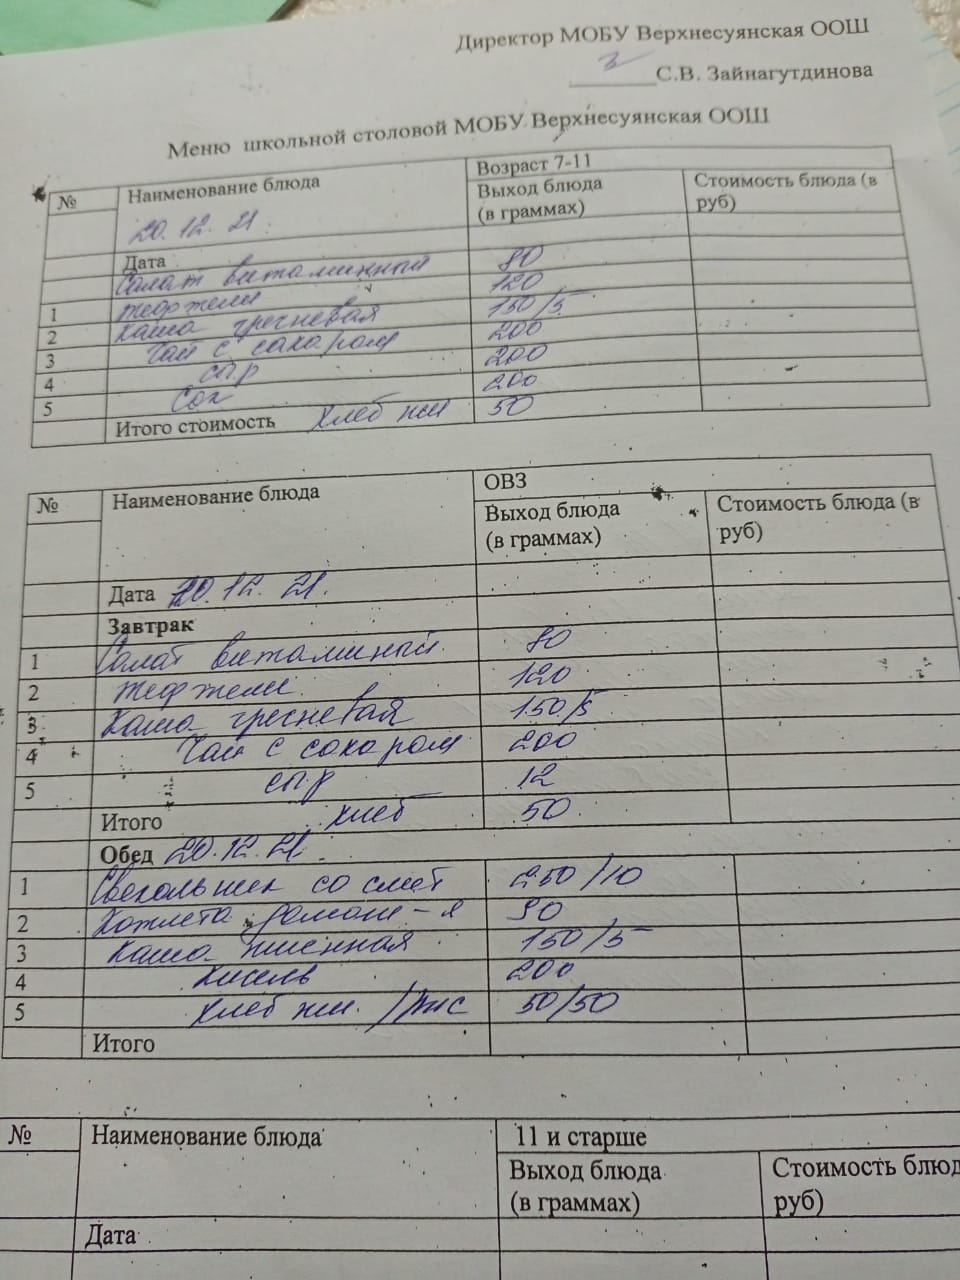 Директор МОБУ Верхнесуянская ООШ
С.В. Зайнагутдинова
Меню школьной столовой МОБУ Верхнесуянская ООШ
№ Наименование блюда Возраст 7-11
Выход блюда (в граммах) Стоимость блюда (в руб)
20.12.21.
Дата
Салат витаминный 80
1 тефтели 120
2 Каша гречневая 150/5
3 Чай с сахаром 200
4 сыр 200
5 Сок 200
Итого стоимость Хлеб пш 50
№ Наименование блюда ОВЗ
Выход блюда (в граммах) Стоимость блюда (в руб)
Дата 20.12.21.
Завтрак
1 Салат витаминный 80
2 тефтели 120
3 Каша гречневая 150/5
4 Чай с сахаром 200
5 сыр 12
Итого хлеб 50
Обед 20.12.21.
1 Свекольник со смет 250/10
2 Котлета домаш-я 90
3 Каша пшенная 150/5
4 Кисель 200
5 Хлеб пш. 50/50
Итого
№ Наименование блюда 11 и старше
Выход блюда (в граммах) Стоимость блюд руб)
Дата